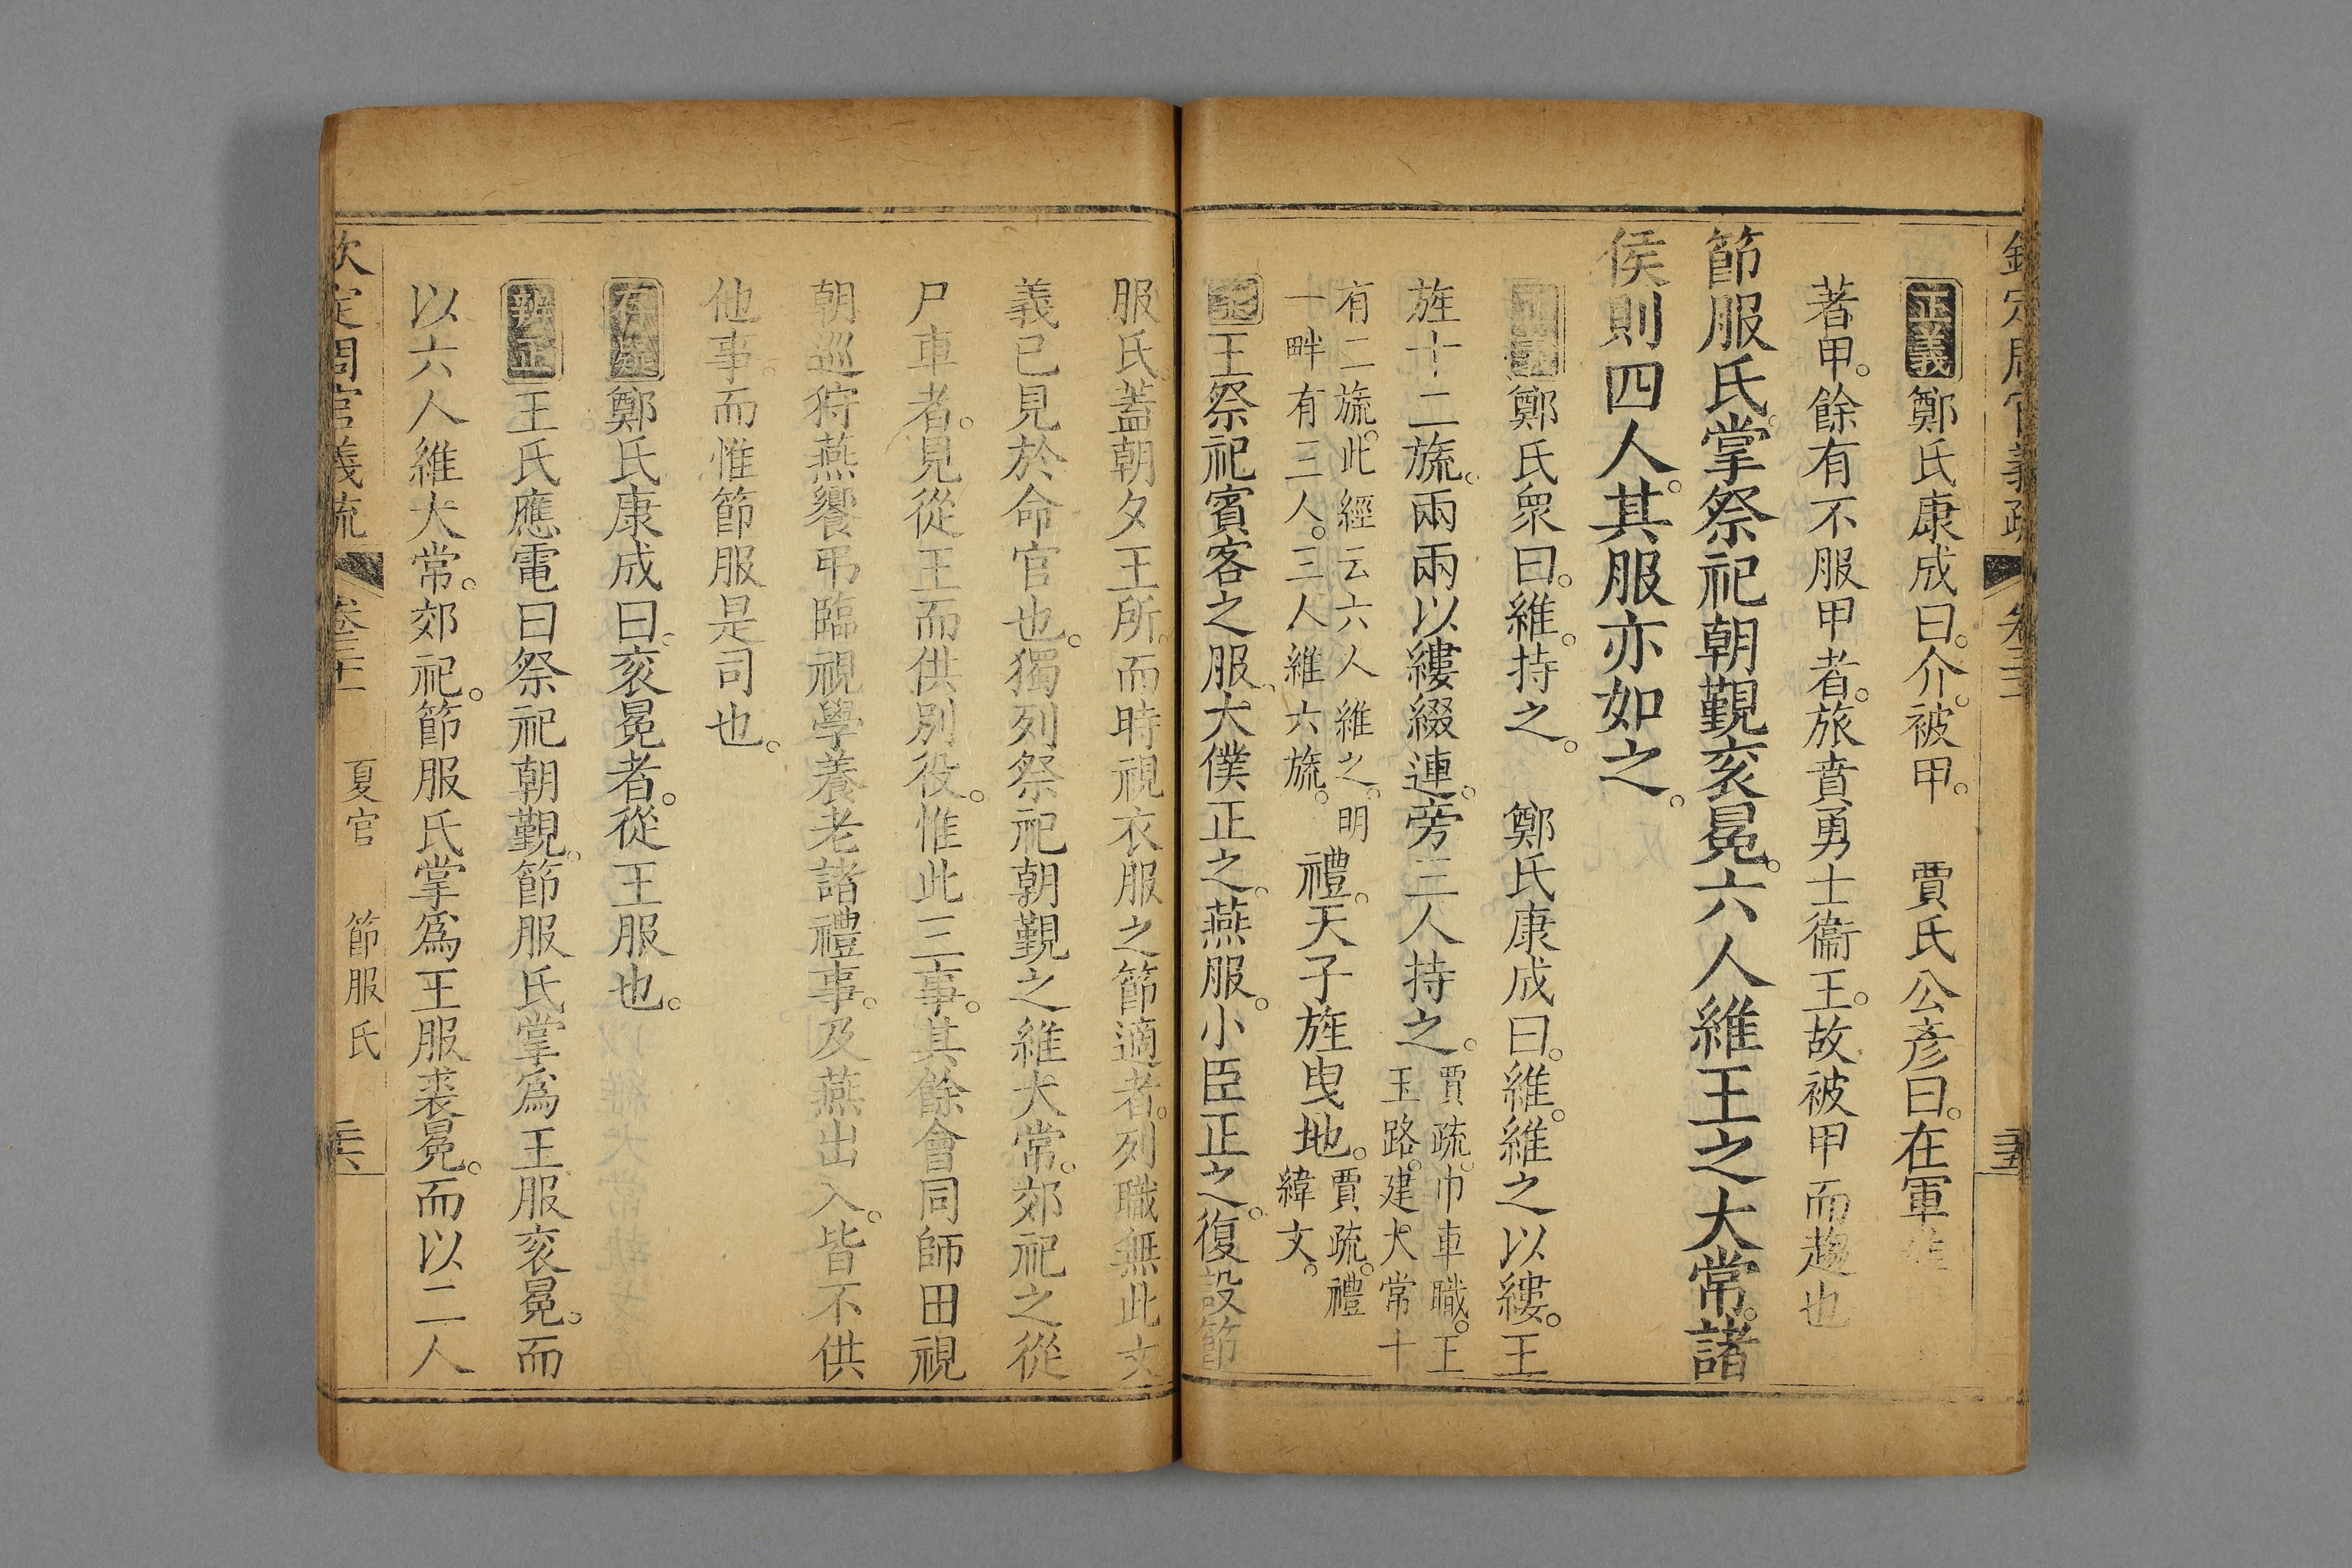 正義鄭氏康成曰。介。被甲。　賈氏公彥曰。在軍
著甲。餘有不服甲者。旅賁勇士衞王。故被甲而趨也
節服氏。掌祭祀朝覲衮冕。六人維王之大常。諸
侯則四人。其服亦如之。
正義鄭氏衆曰。維。持之。　鄭氏康成曰。維。維之以縷。王
旌十二旒。兩兩以縷綴連。旁三人持之。賈疏。巾車職。王
玉路。建大常十
有二旒。此經云六人維之。明
一畔有三人。三人維六旒。禮。天子旌曳地。賈疏。禮
緯文。
王祭祀賓客之服、大僕正之。燕服。小臣正之。復設節
服氏。蓋朝夕王所。而時視衣服之節適者。列職無此文
義已見於命官也。獨列祭祀朝覲之維大常。郊祀之從
尸車者。見從王而供別役。惟此三事。其餘會同師田視
朝巡狩燕饗弔臨視學養老諸禮事。及燕出入。皆不供
他事。而惟節服是司也。
存疑鄭氏康成曰。衮冕者。從王服也。
辨正王氏應電曰祭祀朝覲。節服氏掌爲王服衮冕。而
以六人維大常。郊祀。節服氏掌爲王服裘冕。而以二人
欽定周官義疏　卷三十一　夏官　節服氏　三六